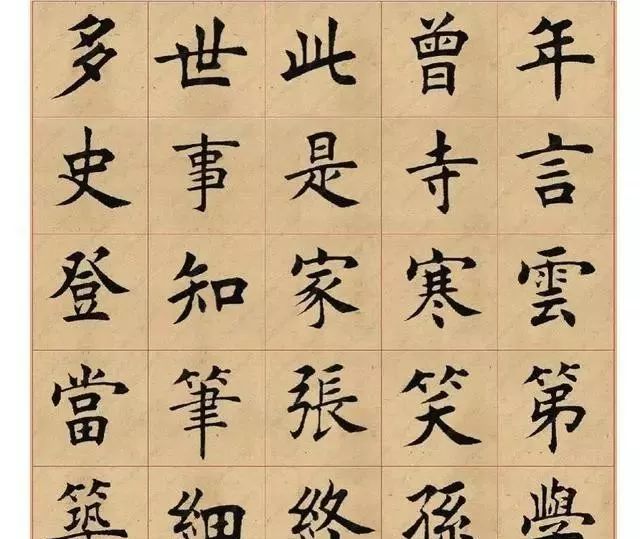 年言雲第學
曾寺寒笑孫
此是家張終
世事知筆細
多史登當築